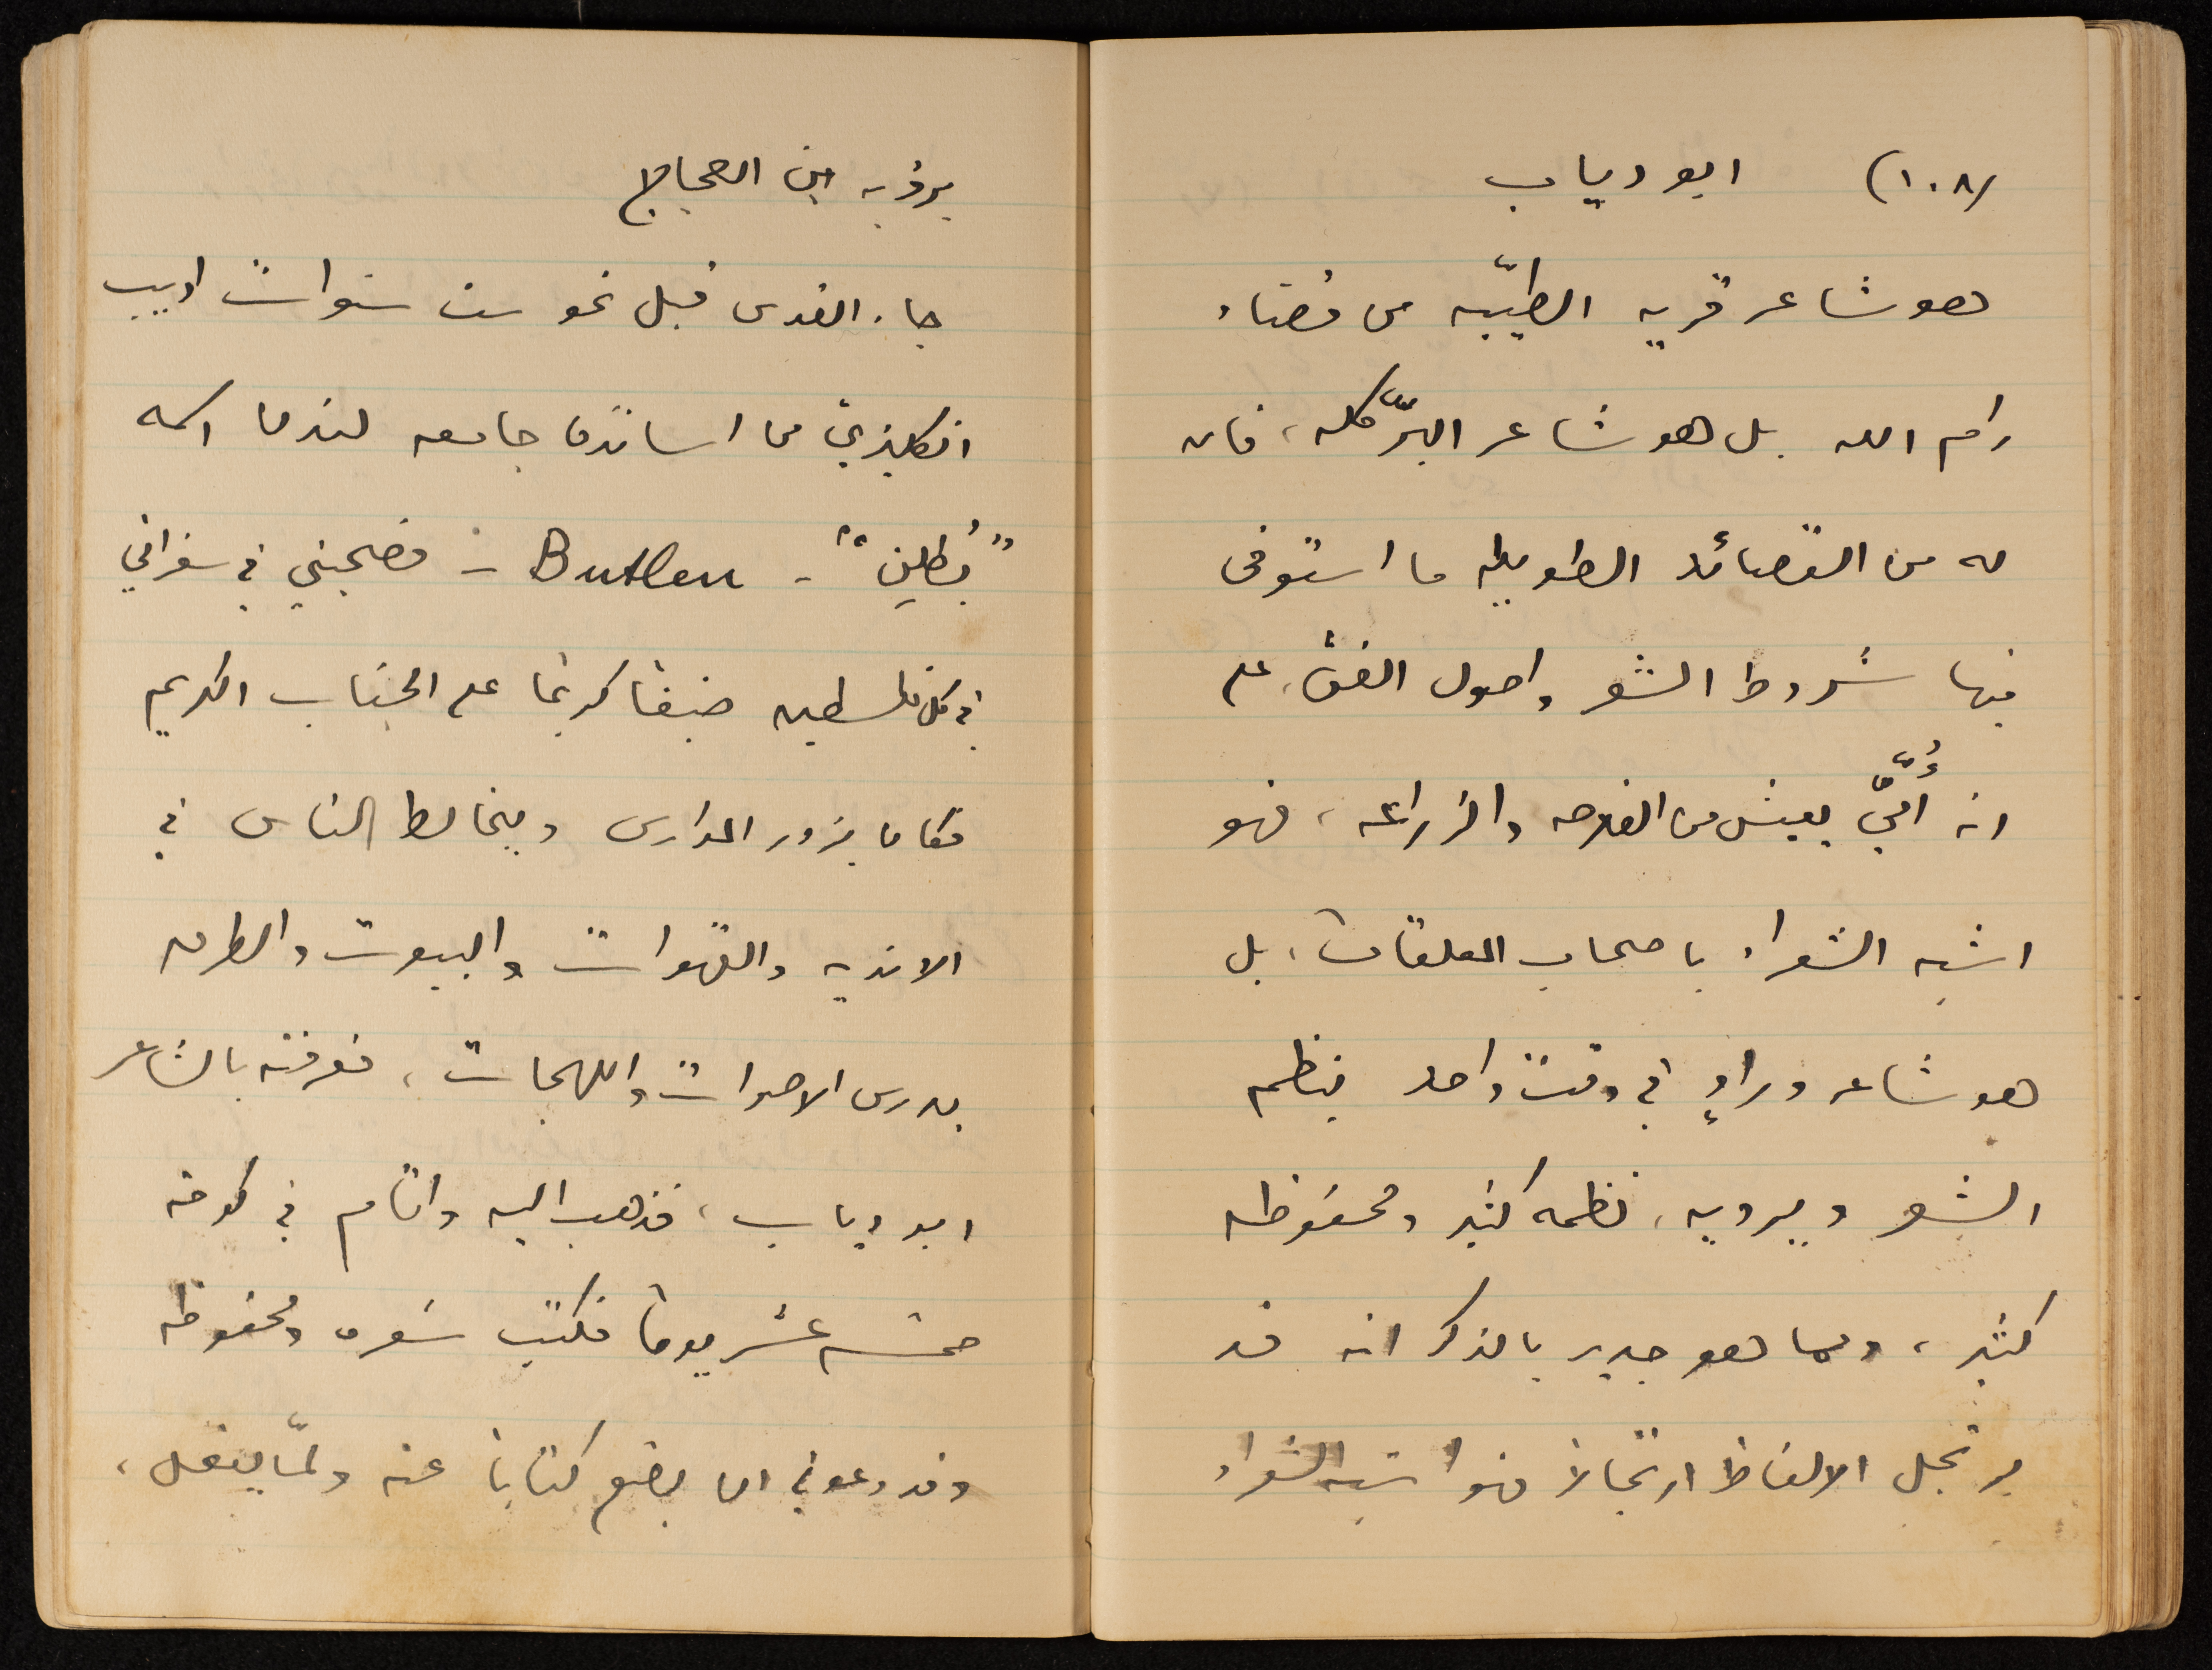 (١٠٨) ابو دياب
هو شاعر قرية الطيّبه من قضاء
رام الله بل هو شاعر البرّ كله، فان
له من القصائد الطويله ما استوفى
فيها شروط الشعر واصول الفن، على
انه أُمّيّ يعيش من الفلاحه والزراعه، فهو
اشبه الشعراء باصحاب المعلقات، بل
هو شاعر وراوٍ في وقت واحد ينظم
الشعر ويرويه، نظمه كثير ومحفوظه
كثير، ومما هو جدير بالذكر انه قد
يرتجل الالفاظ ارتجالاً فهو اشبه الشعراء
برؤبه ابن العجاج
جاء القدس قبل نحو ست سنوات اديب
انكليزيّ من اساتذة جامعه لندن اسمه
"بُطلين" - Butlen - فصحبني في سفراتي
في كل فلسطين ضيفاً كريماً على الجناب الكريم
فكان يزور المدارس ويخالط الناس في
الانديه والقهوات والبيوت والطرق
يدرس الاصوات واللهجات، فعرفته بالشاعر
ابو دياب، فذهب اليه واقام في كوخه
خمسه عشر يوماً فكتب شعره ومحفوظه
وقد وعدني ان يضع كتاباً عنه ولمّا يفعل،